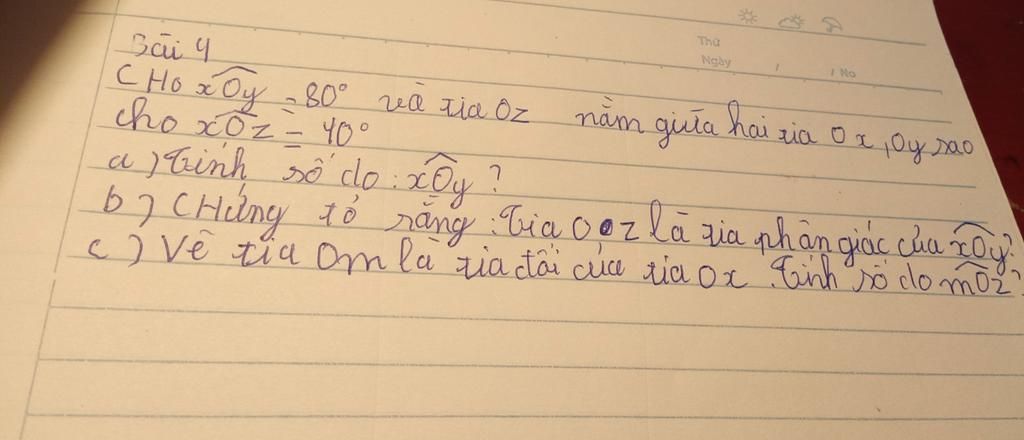 Thứ
Ngày / / No
Bài 4
CHo xOy = 80° và tia Oz nằm giữa hai tia Ox, Oy sao
cho xOz = 40°
a) Tính số đo : xOy ?
b) CHứng tỏ rằng : Tia Oz là tia phân giác của xOy?
c) Vẽ tia Om là tia đối của tia Ox . Tính số đo mOz?